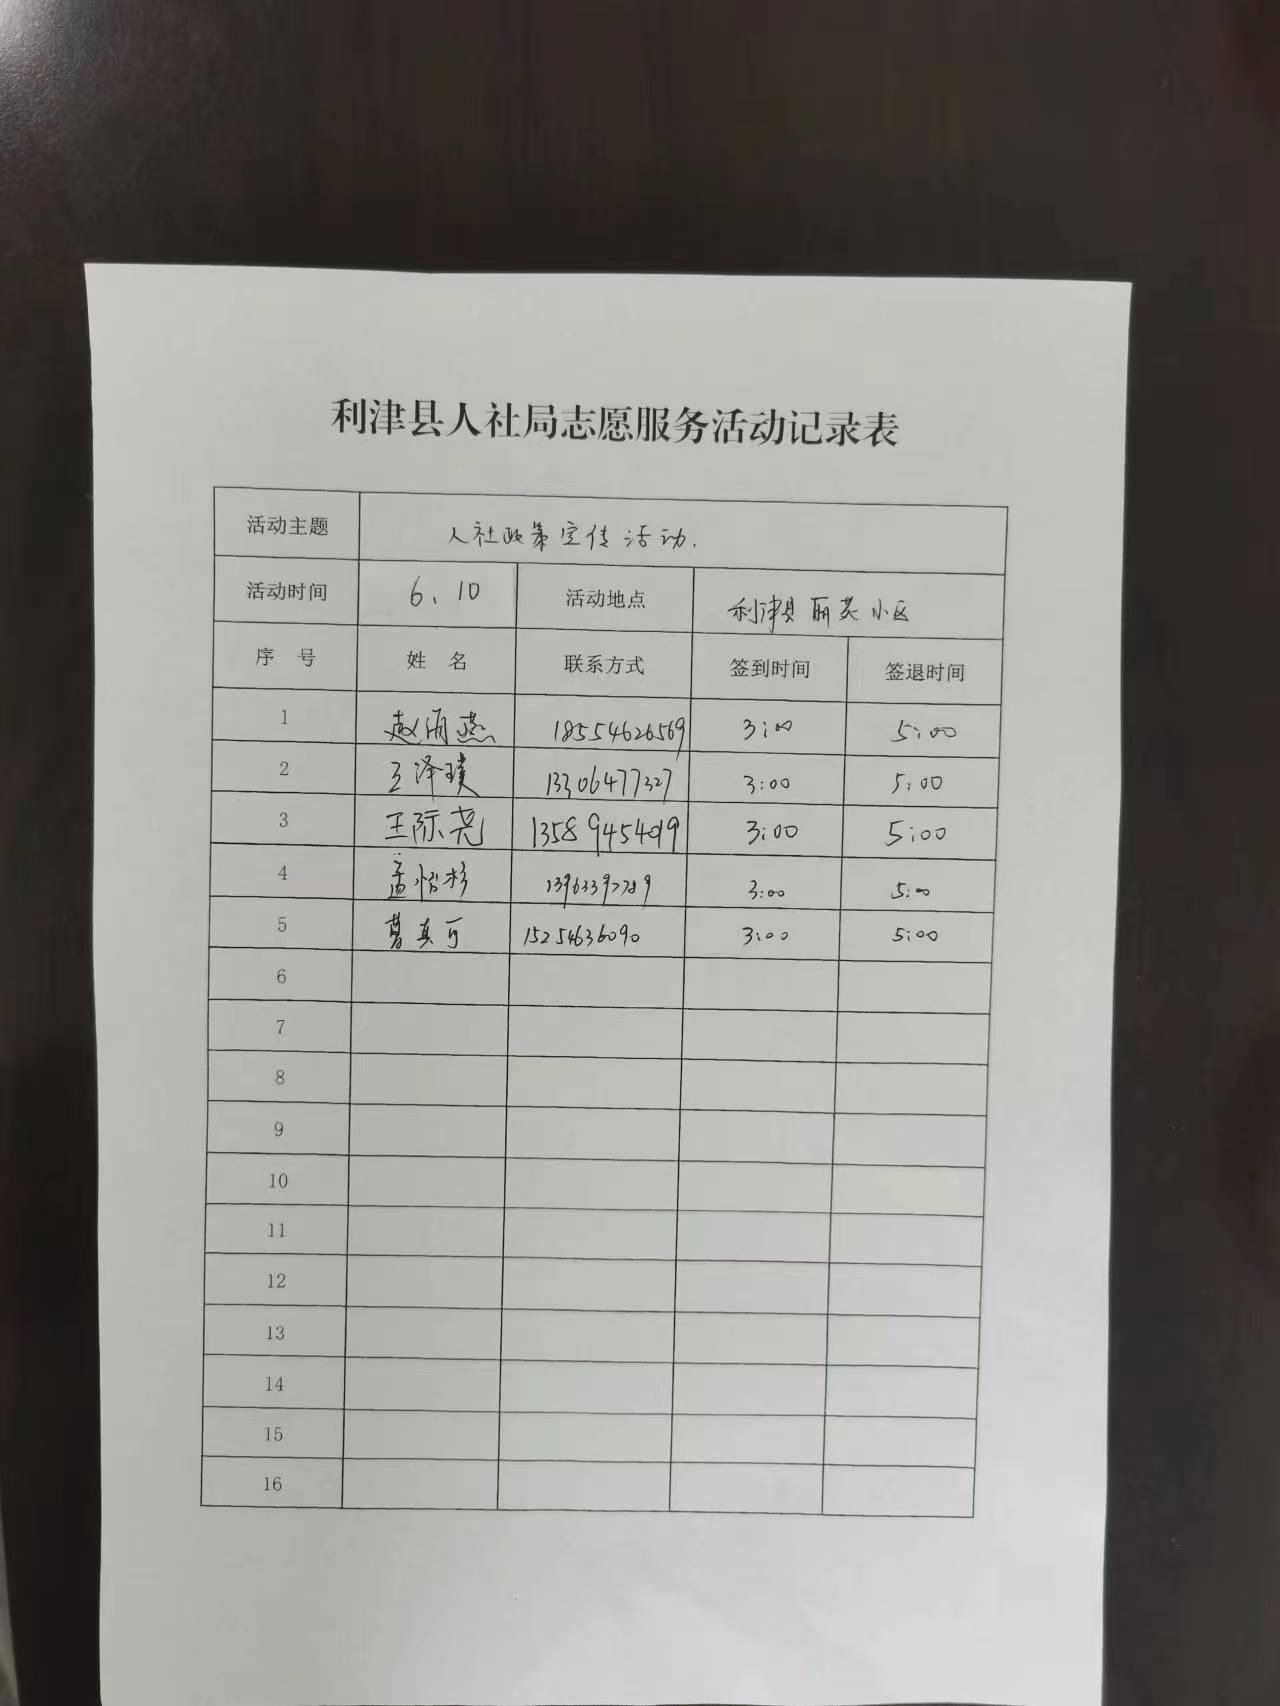 利津县人社局志愿服务活动记录表
活动主题 人社政策宣传活动.
活动时间 6、10 活动地点 利津县丽苑小区
序 号 姓 名 联系方式 签到时间 签退时间
1 赵海燕 18554626569 3:00 5:00
2 王泽璞 13306477327 3:00 5:00
3 王际尧 3:00 5:00
4 盖怡杉 3:00 5:00
5 曹真可 15254636090 3:00 5:00
6
7
8
9
10
11
12
13
14
15
16